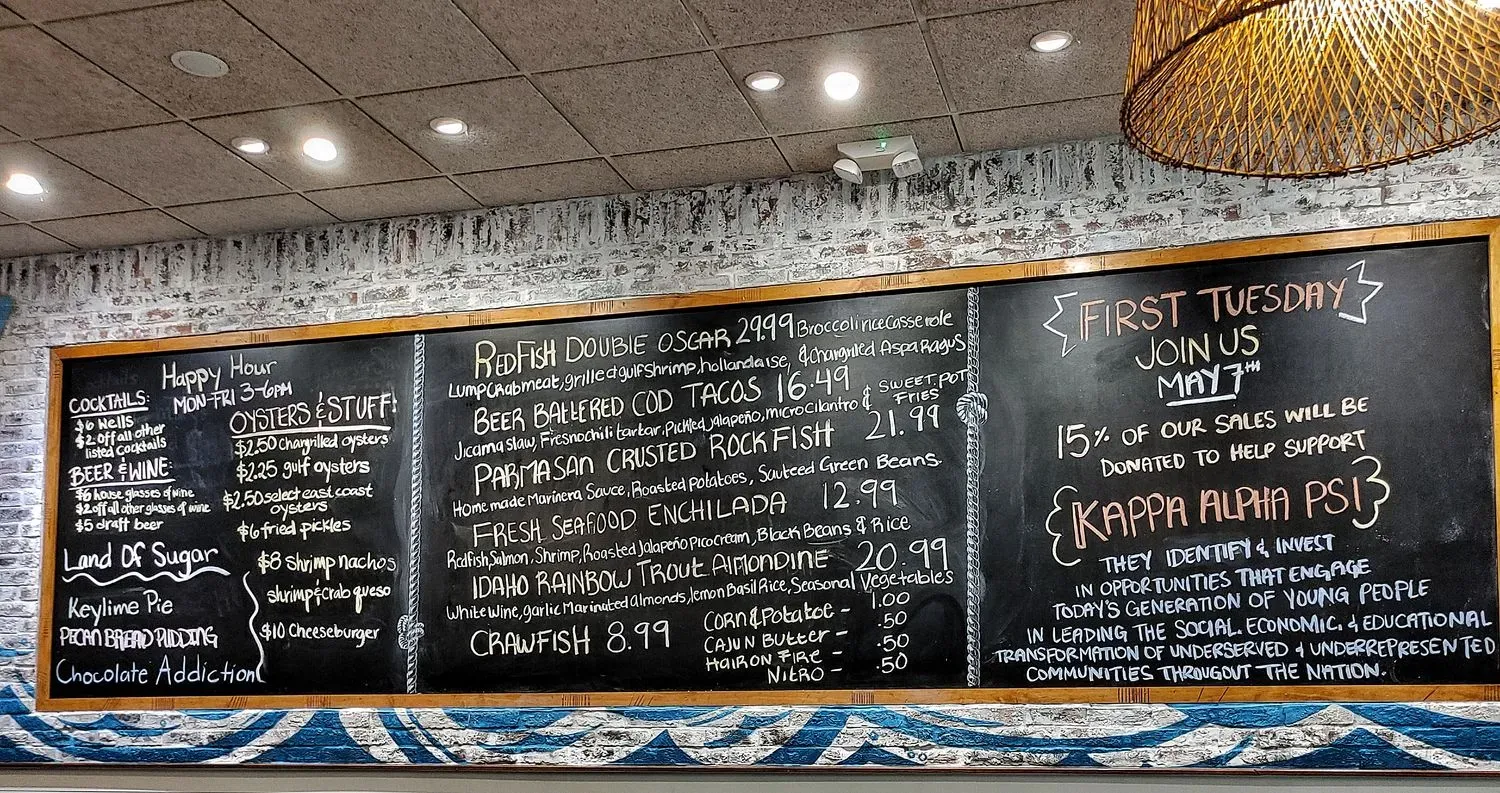 Happy Hour
MON-FRI 3-6PM
COCKTAILS:
$6 Wells
$2 off all other
listed cocktails
BEER & WINE:
$6 house glasses of wine
$2 off all other glasses of wine
$5 draft beer
Land Of Sugar
Keylime Pie
PECAN BREAD PUDDING
Chocolate Addiction
OYSTERS & STUFF:
$2.50 chargrilled oysters
$2.25 gulf oysters
$2.50 select east coast
oysters
$6 fried pickles
$8 shrimp nachos
shrimp & crab queso
$10 Cheeseburger
REDFISH DOUBLE OSCAR 29.99 Broccoli rice Casserole
Lump Crabmeat, grilled gulf shrimp, hollandaise, & Chargrilled Asparagus
BEER BATTERED COD TACOS 16.49
Jicama slaw, Fresno chili tartar, Pickled Jalapeño, micro Cilantro & SWEET POT
FRIES
PARMASAN CRUSTED ROCKFISH 21.99
Homemade Marinera Sauce, Roasted Potatoes, Sauteed Green Beans.
FRESH SEAFOOD ENCHILADA 12.99
Redfish, Salmon, Shrimp, Roasted Jalapeño Pico cream, Black Beans & Rice
IDAHO RAINBOW TROUT ALMONDINE 20.99
White Wine, garlic Marinated almonds, lemon Basil Rice, Seasonal Vegetables
CRAWFISH 8.99
CORN & POTATOE - 1.00
CAJUN BUTTER - .50
HAIR ON FIRE - .50
NITRO - .50
FIRST TUESDAY
JOIN US
MAY 7TH
15% OF OUR SALES WILL BE
DONATED TO HELP SUPPORT
KAPPA ALPHA PSI
THEY IDENTIFY & INVEST
IN OPPORTUNITIES THAT ENGAGE
TODAY'S GENERATION OF YOUNG PEOPLE
IN LEADING THE SOCIAL. ECONOMIC. & EDUCATIONAL
TRANSFORMATION OF UNDERSERVED & UNDERREPRESENTED
COMMUNITIES THROUGOUT THE NATION.